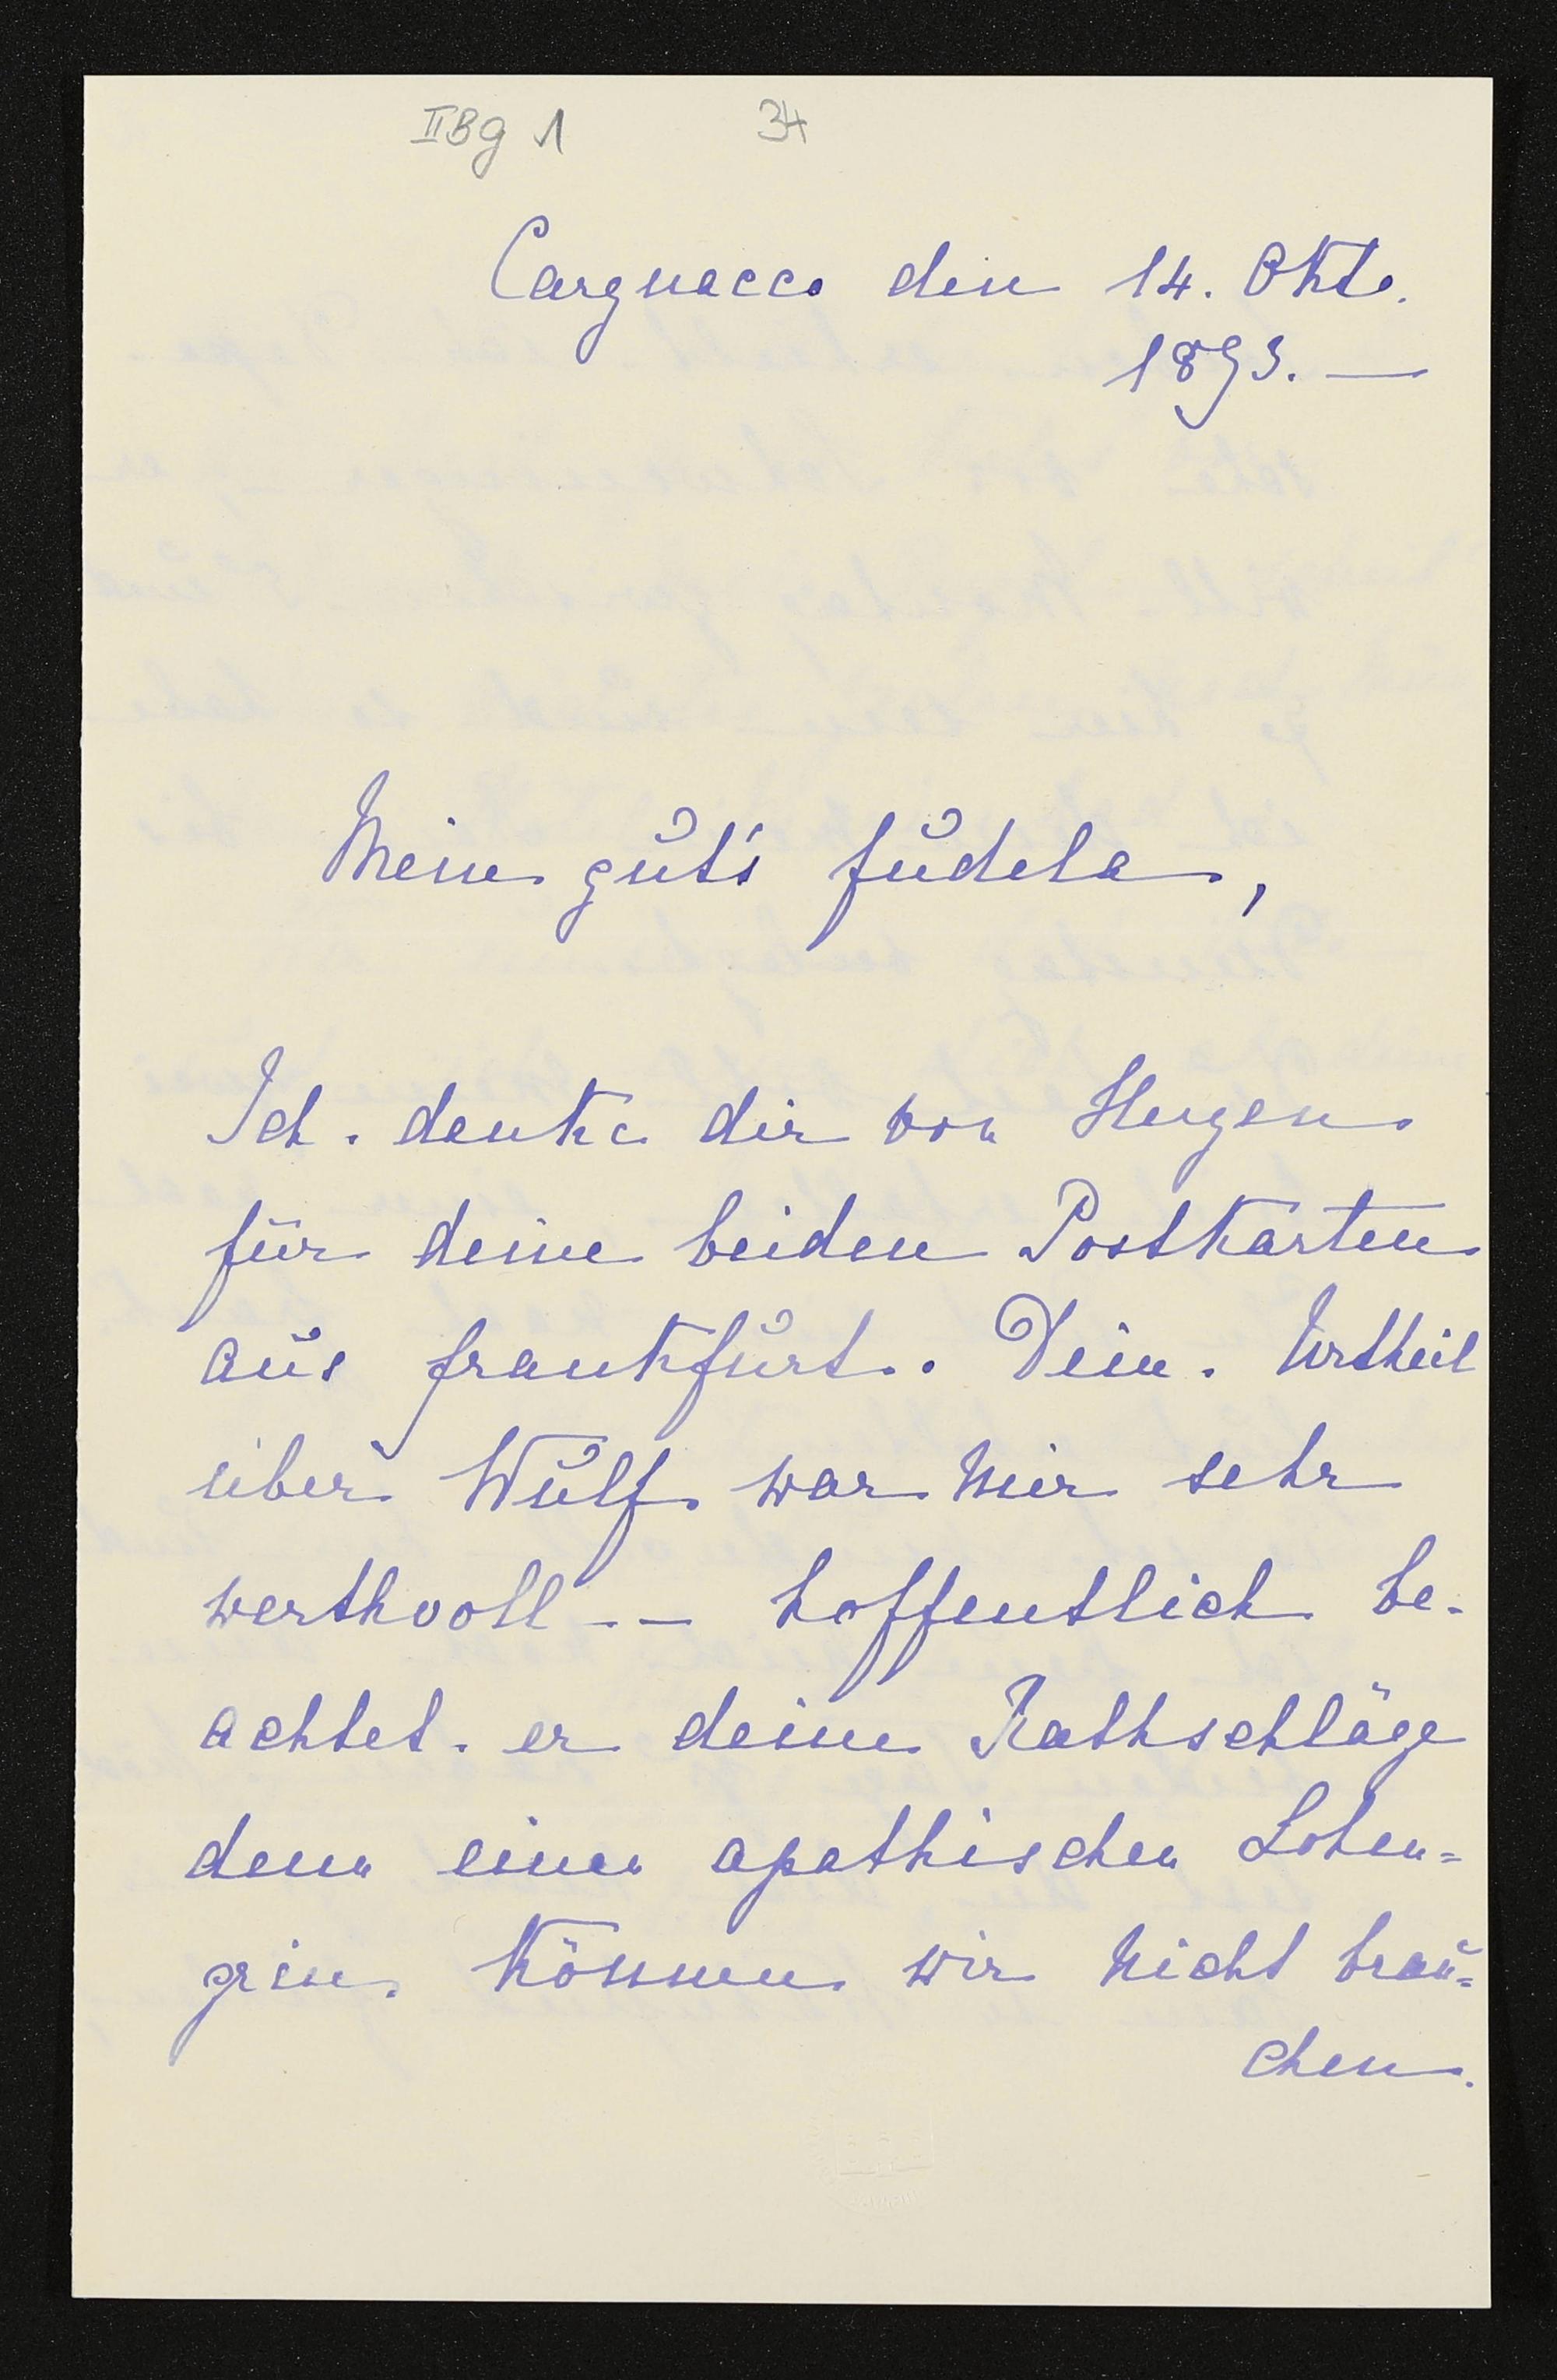 II Bg 1 34
Cargnacco den 14. Okto.
1893. —
Mein gut's fudela,
Ich danke dir von Herzen
für deine beiden Postkarten
aus Frankfurt. Dein Urtheil
über Wulf war mir sehr
werthvoll -- hoffentlich be-
achtet er deine Rathschläge
denn einen apathischen Lohen=
grin können wir nicht brau=
chen.